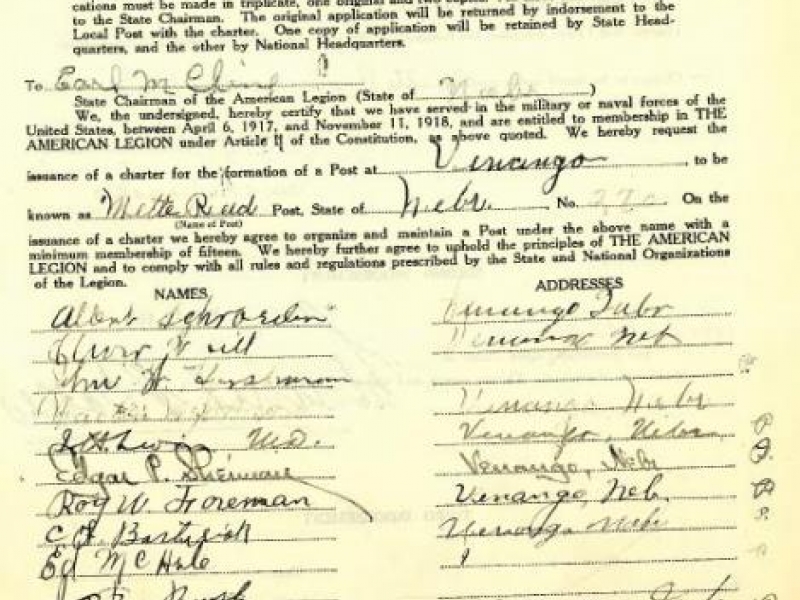 cations must be made in triplicate, one original and two
to the State Chairman. The original application will be returned by indorsement to the
Local Post with the charter. One copy of application will be retained by State Head-
quarters, and the other by National Headquarters.
To Earl M Cline
State Chairman of the American Legion (State of Nebr )
We, the undersigned, hereby certify that we have served in the military or naval forces of the
United States, between April 6, 1917, and November 11, 1918, and are entitled to membership in THE
AMERICAN LEGION under Article II of the Constitution, as above quoted. We hereby request the
issuance of a charter for the formation of a Post at Venango, to be
known as Post, State of Nebr. No. On the
(Name of Post)
issuance of a charter we hereby agree to organize and maintain a Post under the above name with a
minimum membership of fifteen. We hereby further agree to uphold the principles of THE AMERICAN
LEGION and to comply with all rules and regulations prescribed by the State and National Organizations
of the Legion.
NAMES ADDRESSES
Albert Schroeder Venango Nebr
Venango Neb
Wm W
Venango Nebr
M.D. Venango, Nebr
Edgar P. Venango, Nebr
Roy W. Froreman Venango, Neb.
C. Venango Nebr
Ed McHale